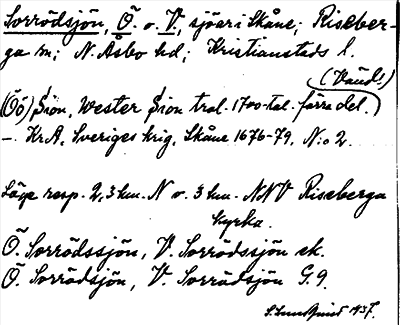 Sorrödsjön, Ö. o. V., sjöar i Skåne; Riseber-
ga sn; N. Åsbo hd; Kristianstads l.
(Vänd!)
(Öö) Siön, Wester Siön tral. 1700-tal. förra del.
–. KrA. Sveriges krig. Skåne 1676-79. N:o 2.
Läge resp. 2,3 km. N o. 3 km. NNV Riseberga
kyrka.
Ö. Sorrödssjön, V. Sorrödssjön ek.
Ö. Sorrödsjön, V. Sorrödsjön G.9.
1937.